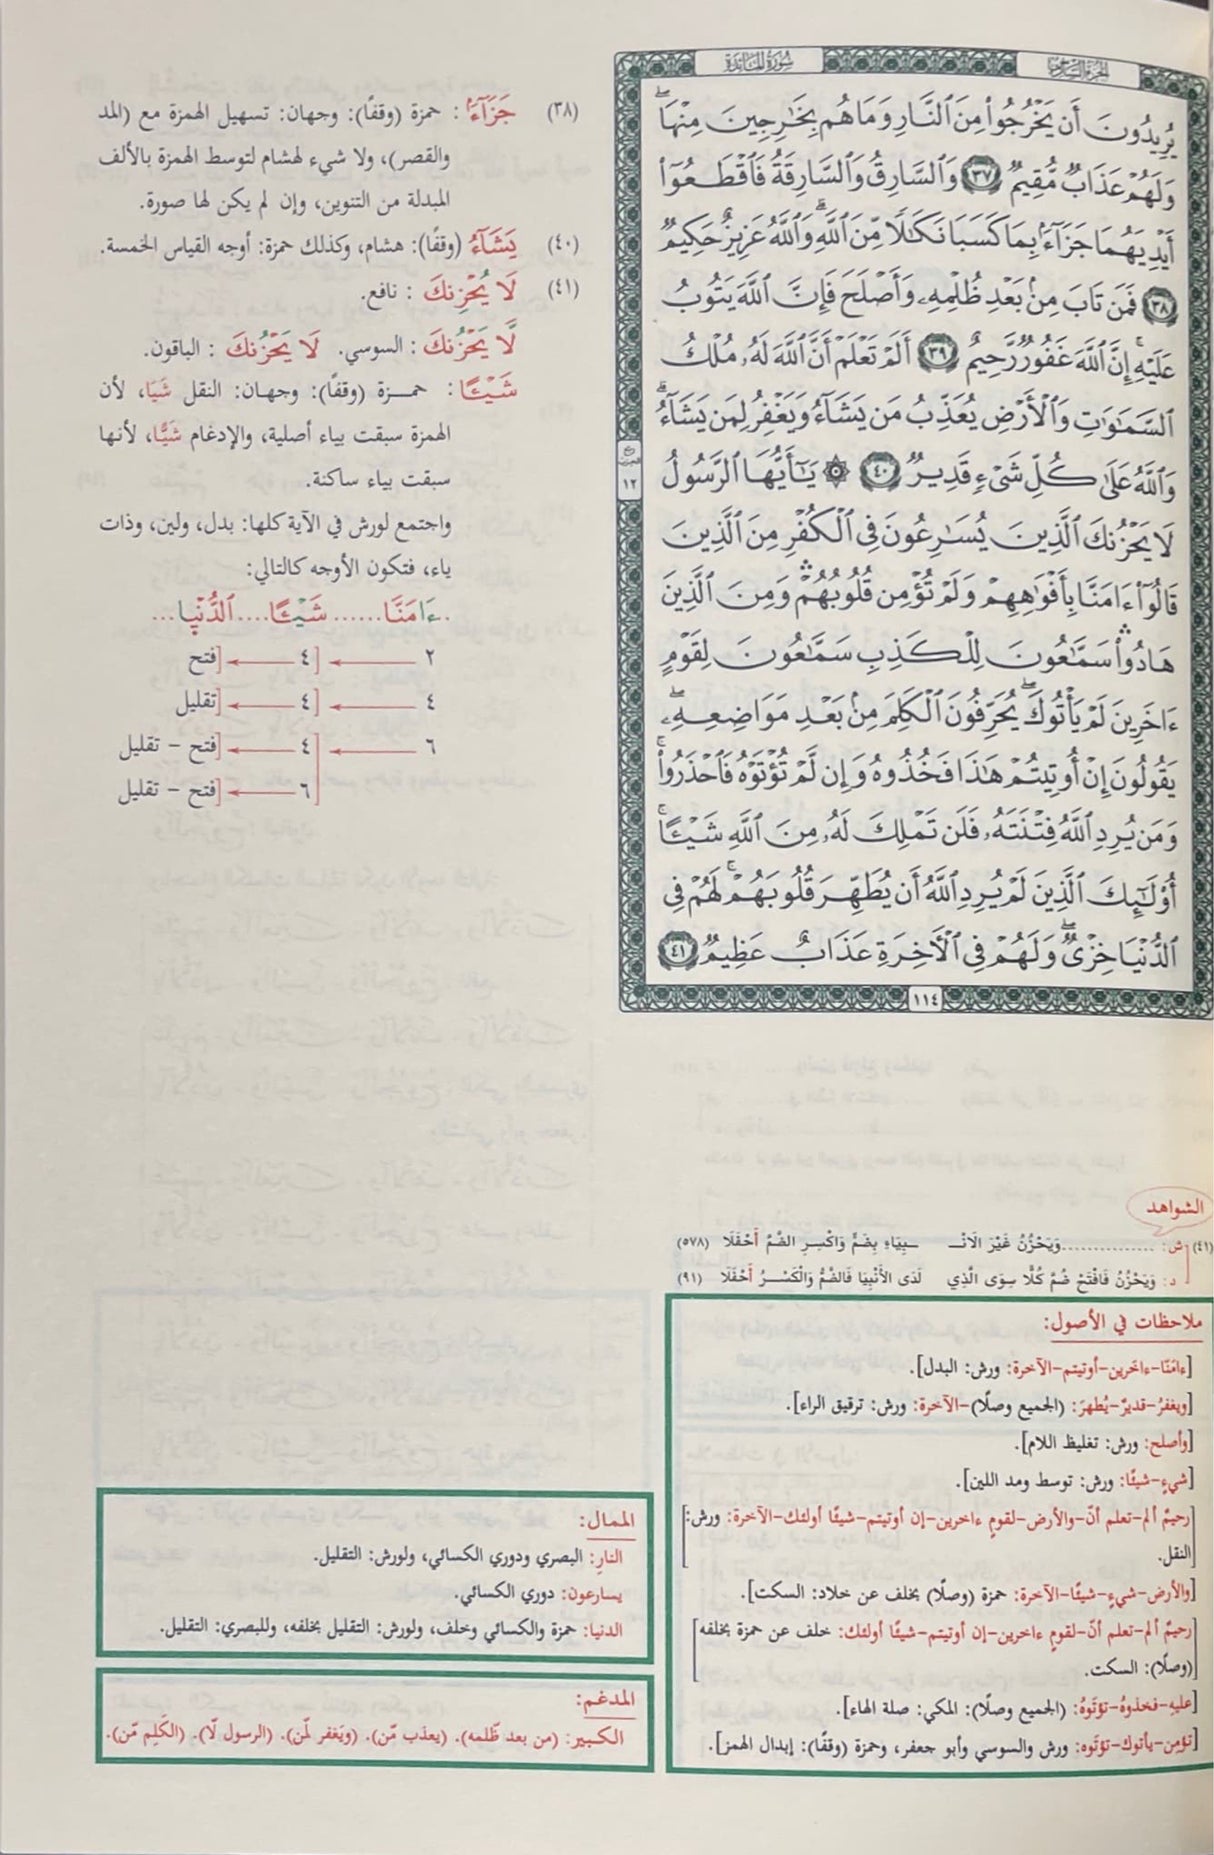 الجزء السادس
سورة المائدة
يُرِيدُونَ أَن يَخْرُجُوا۟ مِنَ ٱلنَّارِ وَمَا هُم بِخَـٰرِجِينَ مِنْهَا ۖ
وَلَهُمْ عَذَابٌ مُّقِيمٌ ٣٧ وَٱلسَّارِقُ وَٱلسَّارِقَةُ فَٱقْطَعُوٓا۟
أَيْدِيَهُمَا جَزَآءًۢ بِمَا كَسَبَا نَكَـٰلًا مِّنَ ٱللَّهِ ۗ وَٱللَّهُ عَزِيزٌ حَكِيمٌ
٣٨ فَمَن تَابَ مِنۢ بَعْدِ ظُلْمِهِۦ وَأَصْلَحَ فَإِنَّ ٱللَّهَ يَتُوبُ
عَلَيْهِ ۗ إِنَّ ٱللَّهَ غَفُورٌ رَّحِيمٌ ٣٩ أَلَمْ تَعْلَمْ أَنَّ ٱللَّهَ لَهُۥ مُلْكُ
ٱلسَّمَـٰوَٰتِ وَٱلْأَرْضِ يُعَذِّبُ مَن يَشَآءُ وَيَغْفِرُ لِمَن يَشَآءُ ۗ
وَٱللَّهُ عَلَىٰ كُلِّ شَىْءٍ قَدِيرٌ ٤٠ ۞ يَـٰٓأَيُّهَا ٱلرَّسُولُ
لَا يَحْزُنكَ ٱلَّذِينَ يُسَـٰرِعُونَ فِى ٱلْكُفْرِ مِنَ ٱلَّذِينَ
قَالُوٓا۟ ءَامَنَّا بِأَفْوَٰهِهِمْ وَلَمْ تُؤْمِن قُلُوبُهُمْ ۛ وَمِنَ ٱلَّذِينَ
هَادُوا۟ ۛ سَمَّـٰعُونَ لِلْكَذِبِ سَمَّـٰعُونَ لِقَوْمٍ
ءَاخَرِينَ لَمْ يَأْتُوكَ ۖ يُحَرِّفُونَ ٱلْكَلِمَ مِنۢ بَعْدِ مَوَاضِعِهِۦ ۖ
يَقُولُونَ إِنْ أُوتِيتُمْ هَـٰذَا فَخُذُوهُ وَإِن لَّمْ تُؤْتَوْهُ فَٱحْذَرُوا۟ ۚ
وَمَن يُرِدِ ٱللَّهُ فِتْنَتَهُۥ فَلَن تَمْلِكَ لَهُۥ مِنَ ٱللَّهِ شَيْـًٔا ۚ
أُو۟لَـٰٓئِكَ ٱلَّذِينَ لَمْ يُرِدِ ٱللَّهُ أَن يُطَهِّرَ قُلُوبَهُمْ ۚ لَهُمْ فِى
ٱلدُّنْيَا خِزْىٌ ۖ وَلَهُمْ فِى ٱلْـَٔاخِرَةِ عَذَابٌ عَظِيمٌ ٤١
١١٤
ربع
الحزب
١٢
(٣٨) جَزَآءَۢ: حمزة (وقفًا): وجهان: تسهيل الهمزة مع (المد
والقصر)، ولا شيء لهشام لتوسط الهمزة بالألف
المبدلة من التنوين، وإن لم يكن لها صورة.
(٤٠) يَشَآءُ (وقفًا): هشام، وكذلك حمزة: أوجه القياس الخمسة.
(٤١) لَا يُحْزِنكَ : نافع.
لَّا يَحْزُنكَ : السوسي. لَا يَحْزُنكَ : الباقون.
شَيْـًٔا: حمزة (وقفًا): وجهان: النقل شَيَا، لأن
الهمزة سبقت بياء أصلية، والإدغام شَيًّا، لأنها
سبقت بياء ساكنة.
واجتمع لورش في الآية كلها: بدل، ولين، وذات
ياء، فتكون الأوجه كالتالي:
.ءَامَنَّا......شَيْـًٔا....ٱلدُّنْيَا...
٢ ← [٤ ← [فتح
٤ ← [٤ ← [تقليل
٦ ← [٤ ← [فتح - تقليل
٦ ← [فتح - تقليل
الشواهد
(٤١) ش: ...............وَيَحْزُنُ غَيْرَ الَانْـ ـبِيَاءِ بِضَمٍّ وَاكْسِرِ الضَّمَّ أَحْفَلَا (٥٧٨)
د: وَيَحْزُنُ فَافْتَحْ ضُمَّ كُلًّا سِوَى الَّذِي لَدَى الأَنْبِيَا فَالضَّمُّ وَالْكَسْرُ أَحْفَلَا (٩١)
ملاحظات في الأصول:
[ءامَنّا-ءاخَرين-أوتيتم-الآخرة: ورش: البدل].
[ويغفرُ-قديرٌ-يُطهرَ: (الجميع وصلًا)-الآخرة: ورش: ترقيق الراء].
[وأصلح: ورش: تغليظ اللام].
[شيءٍ-شيئًا: ورش: توسط ومد اللين].
[رحيمٌ ألم-تعلم أنّ-والأرض-لقومٍ ءاخرين-إن أوتيتم-شيئًا أولئك-الآخرة: ورش:
النقل.]
[والأرض-شيءٍ-شيئًا-الآخرة: حمزة (وصلًا) بخلف عن خلاد: السكت].
[رحيمٌ ألم-تعلم أنّ-لقومٍ ءاخرين-إن أوتيتم-شيئًا أولئك: خلف عن حمزة بخلفه
(وصلًا): السكت.]
[عليهِ-فخذوهُ-تؤتَوهُ: (الجميع وصلًا): المكي: صلة الهاء].
[تؤمِن-يأتوك-تؤتَوه: ورش والسوسي وأبو جعفر، وحمزة (وقفًا): إبدال الهمز].
الممال:
النارِ: البصري ودوري الكسائي، ولورش: التقليل.
يسارعون: دوري الكسائي.
الدنيا: حمزة والكسائي وخلف، ولورش: التقليل بخلفه، وللبصري: التقليل.
المدغم:
الكبير: (من بعد ظّلمه). (يعذب مّن). (ويَغفر لّمن). (الرسول لّا). (الكَلِم مّن).